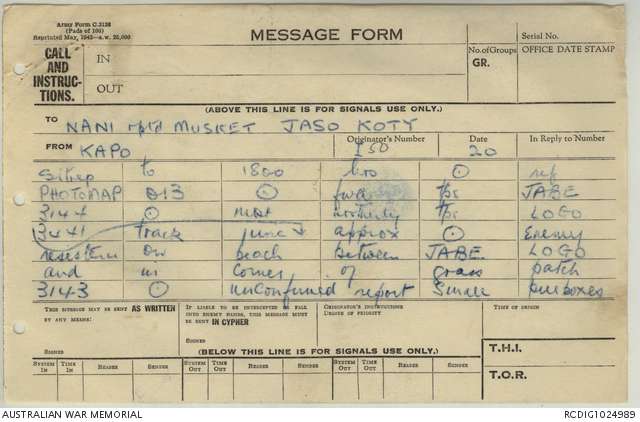 Army Form C.2128
(Pads of 100)
Reprinted May, 1942—a.w. 25,000
MESSAGE FORM
Serial No.
CALL
AND
INSTRUC-
TIONS.
IN
OUT
No. of Groups
GR.
OFFICE DATE STAMP
(ABOVE THIS LINE IS FOR SIGNALS USE ONLY.)
TO
NANI rptd MUSKET JASO KOTY
FROM
KAPO
Originator's Number
I50
Date
20
In Reply to Number
Sitrep to 1800 hrs ⊙ ref
PHOTOMAP 213 ⊙ fwd tps JABE
3144 ⊙ most northerly tps LOGO
3441 track junc approx ⊙ Enemy
on beach between JABE LOGO
and in corner of grass patch
3143 ⊙ unconfirmed report small pillboxes
THIS MESSAGE MAY BE SENT AS WRITTEN
BY ANY MEANS:
SIGNED
IF LIABLE TO BE INTERCEPTED OR FALL
INTO ENEMY HANDS, THIS MESSAGE MUST
BE SENT IN CYPHER
SIGNED
ORIGINATOR'S INSTRUCTIONS
DEGREE OF PRIORITY
TIME OF ORIGIN
(BELOW THIS LINE IS FOR SIGNALS USE ONLY.)
T.H.I.
T.O.R.
SYSTEM IN TIME IN READER SENDER SYSTEM OUT TIME OUT READER SENDER SYSTEM OUT TIME OUT READER SENDER
AUSTRALIAN WAR MEMORIAL
RCDIG1024989